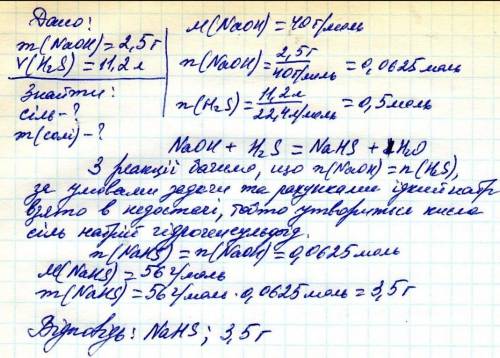 Дано:
m(NaOH)=2,5г
V(H₂S)=11,2л
Знайти:
сіль-?
m(солі)-?
M(NaOH)=40г/моль
n(NaOH)=2,5г/40г/моль=0,0625моль
n(H₂S)=11,2л/22,4л/моль=0,5моль
NaOH + H₂S = NaHS + H₂O
З реакції бачимо, що n(NaOH)=n(H₂S),
за умовами задачи та рахунками їдкий натр
взято в недостачі, тобто утвориться кисла
сіль натрій гідрогенсульфід.
n(NaHS)=n(NaOH)=0,0625моль
M(NaHS)=56г/моль
m(NaHS)=56г/моль·0,0625моль=3,5г
Відповідь: NaHS; 3,5г